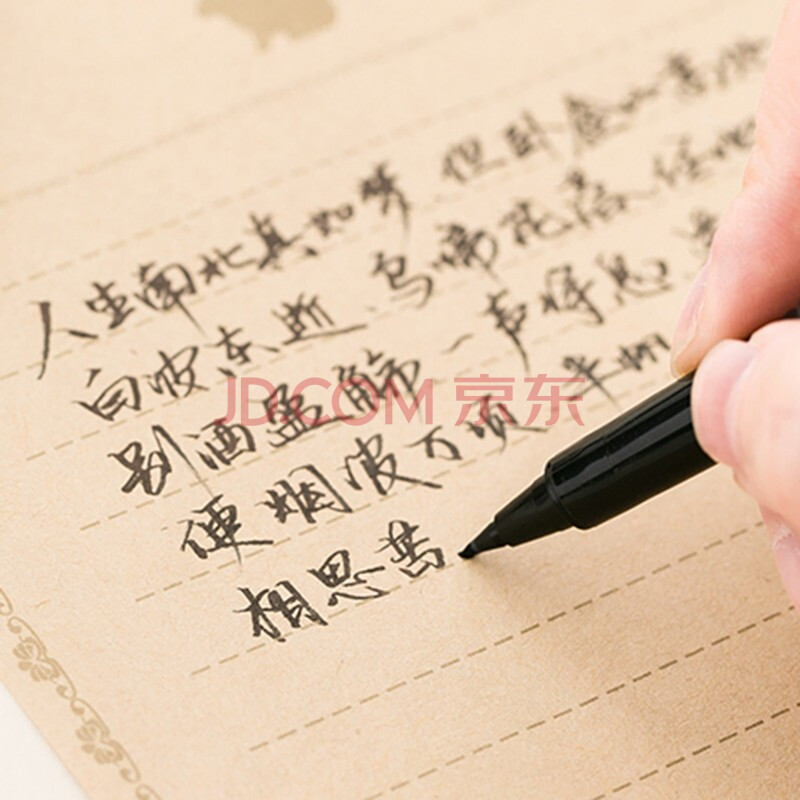 人生南北真如梦,但卧金山高处
白波东逝,鸟啼花落,任他
别酒盈觞,一声将息,
JD.COM 京东
便烟波万顷,半帆
相思苦